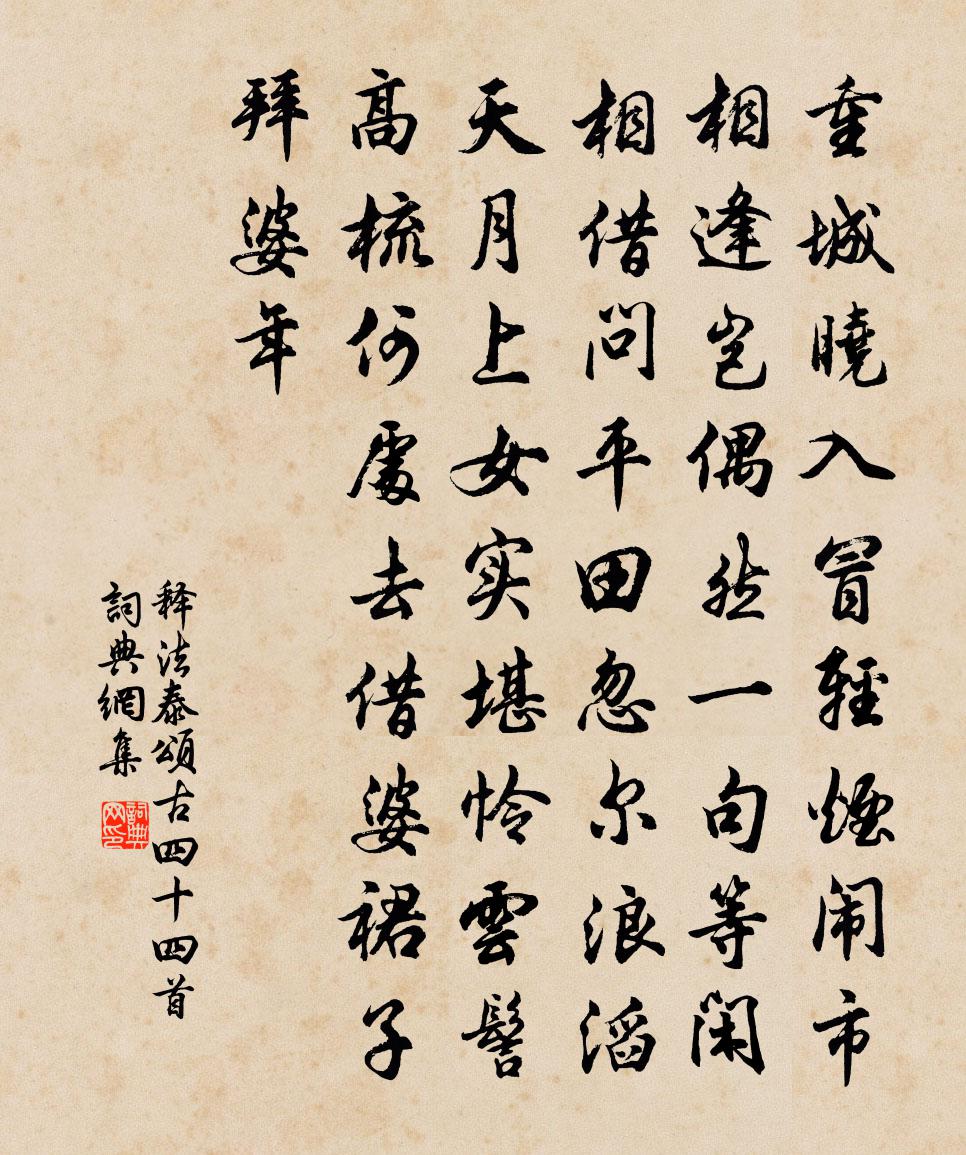 重城曉入冒輕煙闹市
相逢岂偶然一句等闲
相借問平田忽尔浪滔
天月上女实堪怜雲髻
高梳何處去借婆裙子
拜婆年
释法泰頌古四十四首
詞典網集
詞典网印